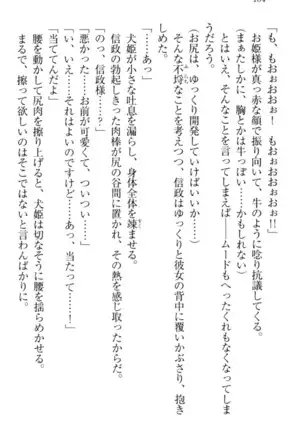 164
「も、もぉおぉぉ！　もぉぉおぉぉぉ!!」
お姫様が真っ赤な顔で振り向いて、牛のように唸り抗議してくる。
（まぁたしかに、胸とかは牛っぽい……かもしれない）
とはいえ、そんなことを言ってしまえば――ムードもへったくれもなくなってしまうだろう。
（お尻は、ゆっくり開発していけばいいか……）
そんな不埒なことを考えつつ、信政はゆっくりと彼女の背中に覆いかぶさり、抱きしめた。
「……あっ」
犬姫が小さな吐息を漏らし、身体全体を竦ませる。
信政の勃起しきった肉棒が尻の谷間に置かれ、その熱を感じ取ったからだ。
「のっ、信政様……？」
「悪かった……お前が可愛くて、ついつい……」
「い、いえ……それはよいのですけど……あっ、当たって……！」
「当ててんだよ」
腰を動かして尻肉を擦り上げると、犬姫は切なそうに腰を揺らめかせる。
まるで、擦って欲しいのはそこではないと言わんばかりに。